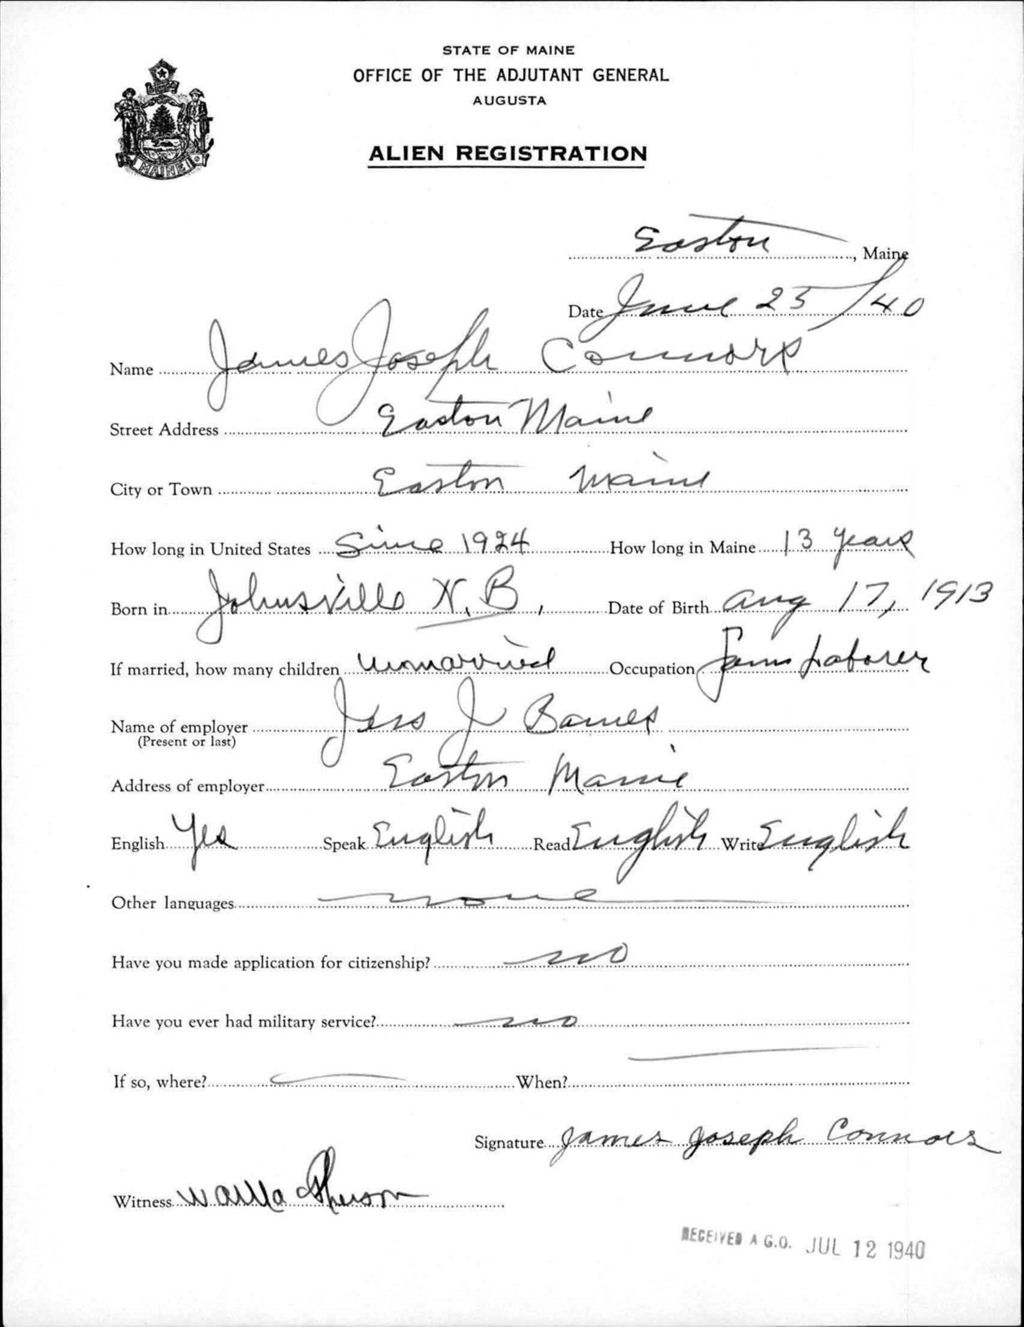 STATE OF MAINE
OFFICE OF THE ADJUTANT GENERAL
AUGUSTA
ALIEN REGISTRATION
MAINE
Easton, Maine
Date June 25/40
Name James Joseph Connors
Street Address Easton Maine
City or Town Easton Maine
How long in United States Since 1924 How long in Maine 13 years
Born in Johnsville N.B, Date of Birth Aug 17, 1913
If married, how many children unmarried Occupation Farm Laborer
Name of employer Jess J Barnes
(Present or last)
Address of employer Easton Maine
English Yes Speak English Read English Write English
Other languages none
Have you made application for citizenship? no
Have you ever had military service? no
If so, where? When?
Signature James Joseph Connors
Witness
RECEIVED A.G.O. JUL 12 1940